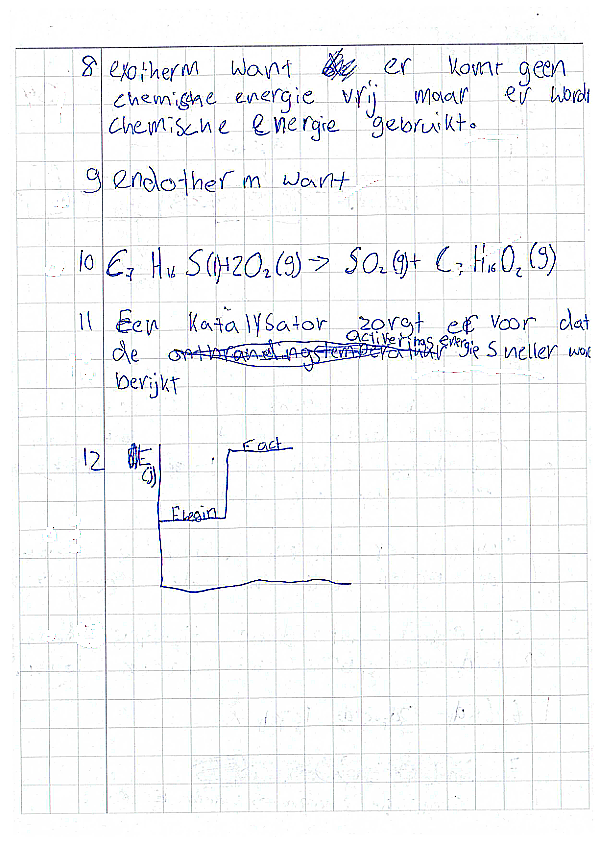 8 exotherm want er komt geen
chemische energie vrij maar er wordt
chemische energie gebruikt.
9 endotherm want
10 C₇ H₁₆ S(l)+2O₂(g) → SO₂(g)+ C₇H₁₆O₂(g)
11 Een Katalysator zorgt er voor dat
activerings energie
de ontbrandingstemperatuur sneller wor
berijkt
12 E
(J)
Eact
Ebegin